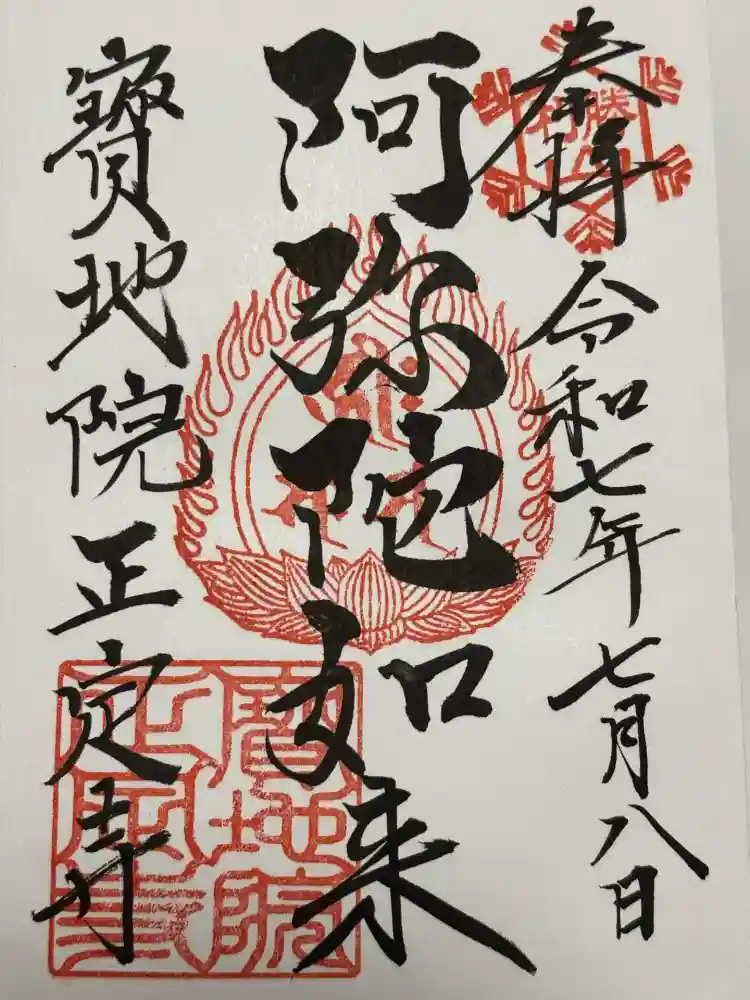 奉拝
令和七年七月八日
阿弥陀如来
寳地院正定寺
寳地院
正定寺